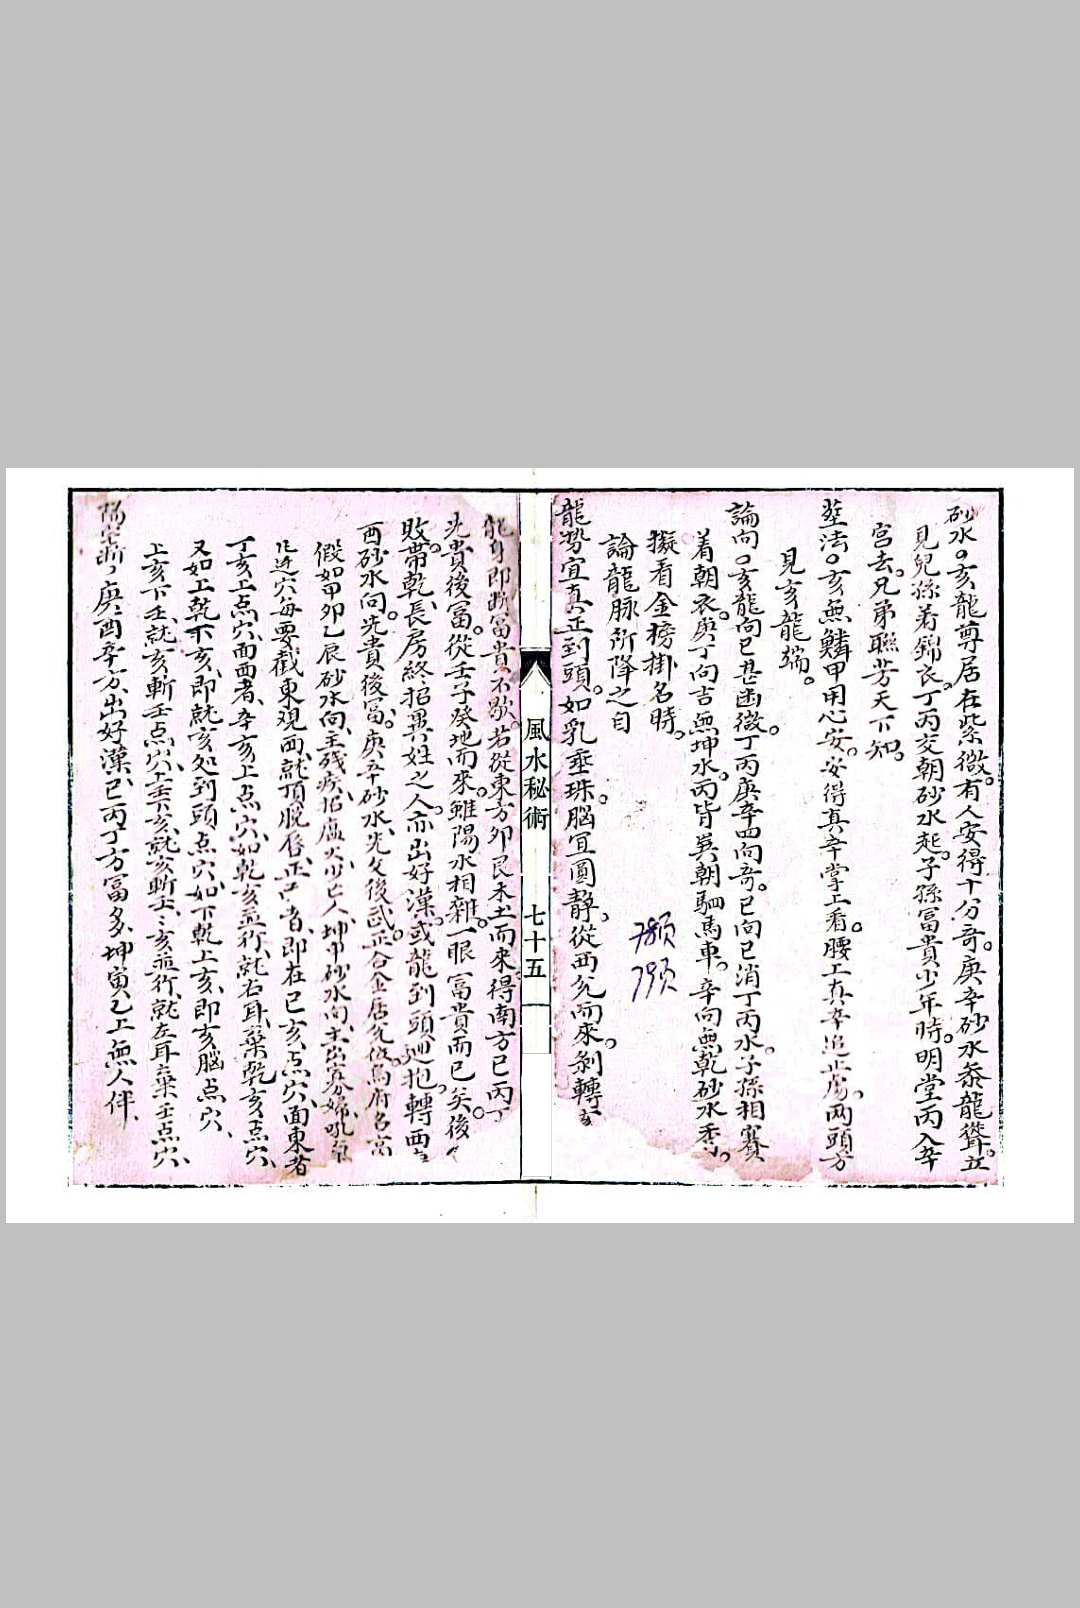 砂水。亥龍尊居在紫微。有人安得十分奇。庚辛砂水叅龍聳立
見兒孫着錦衣。丁丙交朝砂水起。子孫冨貴少年時。明堂丙入辛
宮去。兄弟聯芳天下知。
塟法。亥無鱗甲用心安。安得真辛掌上看。腰上真辛迢正<br>。两頭方
見亥龍端。
論向。亥龍向巳甚幽微。丁丙庚辛四向奇。巳向巳消丁丙水。子孫相賽
着朝衣。庚丁向吉無坤水。丙皆巽朝駟馬車。辛向無乾砂水秀。
擬看金榜掛名時。
論龍脉所降之自
龍势宜真正到頭。如乳垂珠腦宜圓静。從西兊而來剝轉亥
789頁
799頁
風水秘術
七十五
龍身即断冨貴不歇。若從東方卯艮未土而來。得南方巳丙丁
先貴後冨。從壬子癸地而來。雖陽水相雜。一眼冨貴而已矣。後
敗帶乾、長房終招異姓之人。亦出好漢。或龍到頭廻抱。轉西
酉砂水向。先貴後冨。庚辛砂水、先文後武。正合金居兊位、為府名高
假如甲卯乙辰砂水向、主残疾、招瘟火少亡人、坤申砂水向、主出寡婦、
凡迁穴每要截東观西、就頂脱唇、正、即在巳亥点穴、面東者
丁亥上点穴、面西者、辛亥上点穴、如乾亥並行、就右耳、棄乾亥点穴、
又如上乾下亥、即就亥処到頭点穴、如下乾上亥、即亥腦点穴、
上亥下壬、就亥斬壬点穴、上壬下亥、就亥斬壬、壬亥並行、就左耳棄壬点穴、
陽宅断、庚酉辛方出好漢、巳丙丁方冨多、坤寅乙上無人伴、